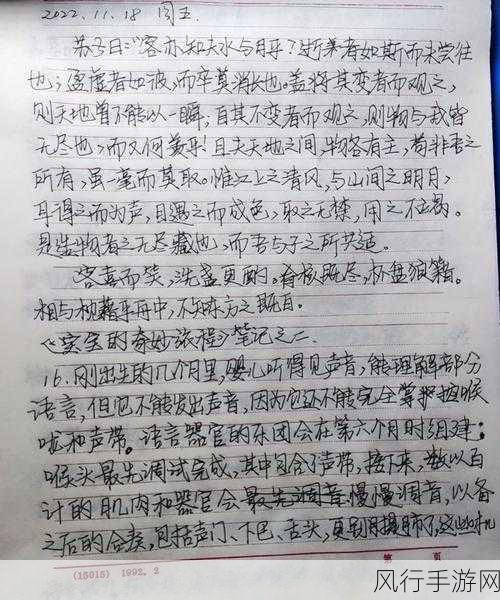 2022.11.18 周五.
苏子曰:“客亦知夫水与月乎?逝者如斯,而未尝往
也;盈虚者如彼,而卒莫消长也。盖将其变者而观之,
则天地曾不能以一瞬;自其不变者而观之,则物与我皆
无尽也,而又何羡乎!且夫天地之间,物各有主,苟非吾之
所有,虽一毫而莫取。惟江上之清风,与山间之明月,
耳得之而为声,目遇之而成色,取之无禁,用之不竭。
是造物者之无尽藏也,而吾与子之所共适。
客喜而笑,洗盏更酌。肴核既尽,杯盘狼籍。
相与枕藉乎舟中,不知东方之既白。
《宝宝的奇妙旅程》笔记之二
16.刚出生的几个月里,婴儿听得见声音,能理解部分
语言,但它不能发出声音,因为它还不能完全掌控喉
咙和声带。语言器官的乐团会在第六个月时组建:
喉头最先调试完成,其中包含了声带,接下来,数以百
计的肌肉和器官会慢慢调音,以备
之后的合奏,包括声门、下巴、舌头,
(15015) 1992.2
第 页
风行手游网